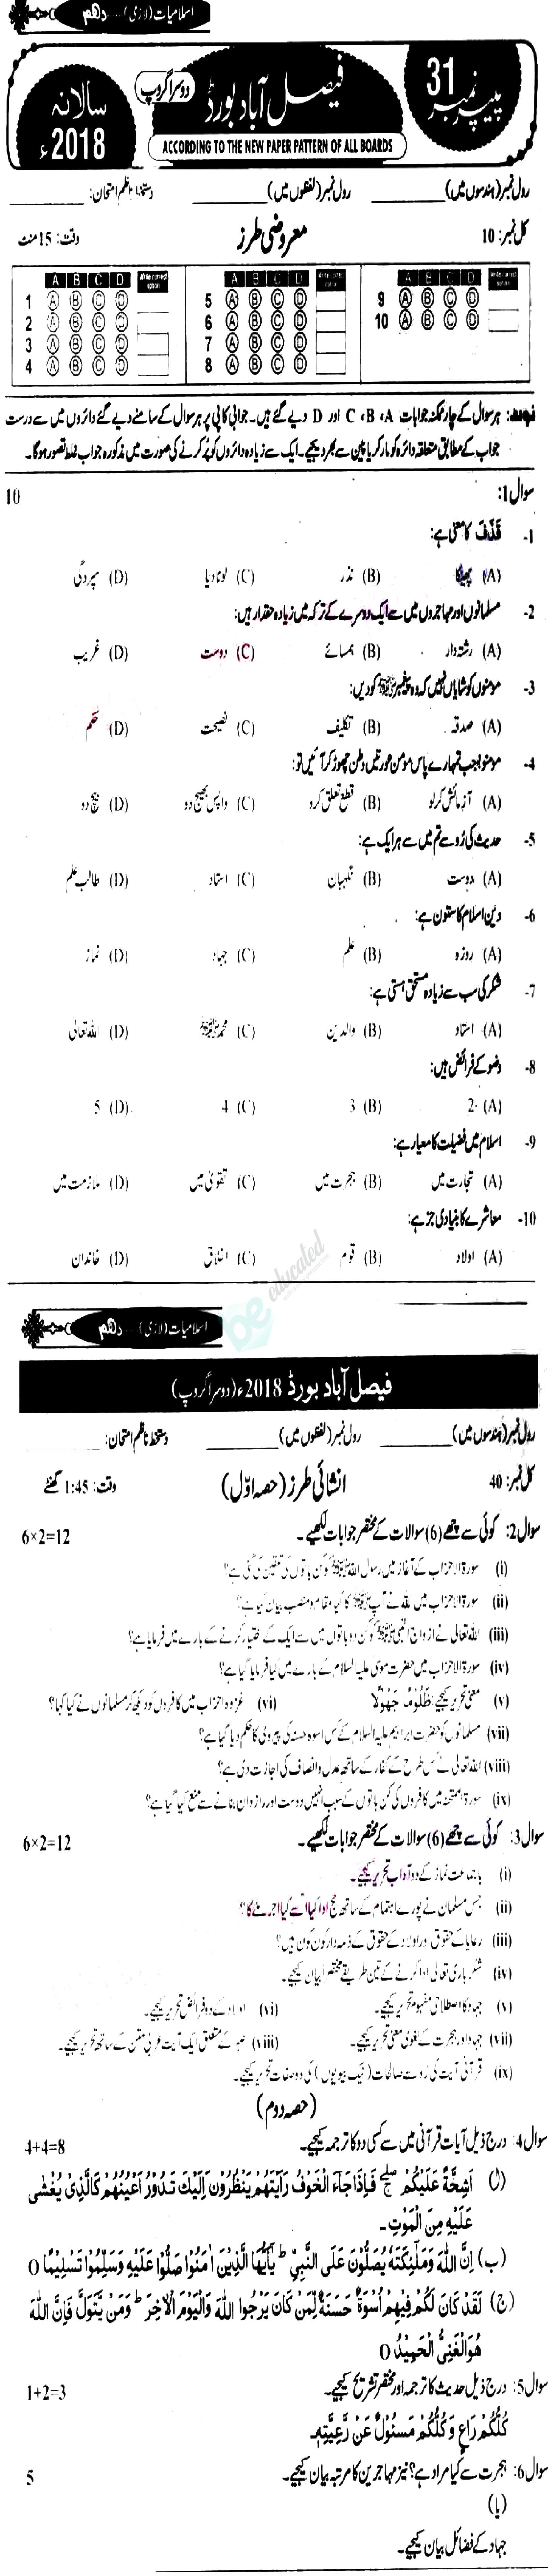 اسلامیات (لازمی)..... دھم
پیپر نمبر 31
فیصل آباد بورڈ
دوسرا گروپ
سالانہ 2018ء
ACCORDING TO THE NEW PAPER PATTERN OF ALL BOARDS
رول نمبر (ہندسوں میں) __________ رول نمبر (لفظوں میں) __________ دستخط ناظم امتحان: __________
کل نمبر: 10 معروضی طرز وقت: 15 منٹ
A B C D Write correct option A B C D Write correct option A B C D Write correct option
1 A B C D 5 A B C D 9 A B C D
2 A B C D 6 A B C D 10 A B C D
3 A B C D 7 A B C D
4 A B C D 8 A B C D
نوٹ: ہر سوال کے چار ممکنہ جوابات A، B، C اور D دیے گئے ہیں۔ جوابی کاپی پر ہر سوال کے سامنے دیے گئے دائروں میں سے درست
جواب کے مطابق متعلقہ دائرہ کو مارکر یا پین سے بھر دیجیے۔ ایک سے زیادہ دائروں کو پُر کرنے کی صورت میں مذکورہ جواب غلط تصور ہوگا۔
سوال 1: 10
1- قَذَفَ کا معنی ہے:
(A) پھینکا (B) نذر (C) لوٹا دیا (D) سپردگی
2- مسلمانوں اور مہاجروں میں سے ایک دوسرے کے ترکہ میں زیادہ حقدار ہیں:
(A) رشتہ دار (B) ہمسائے (C) دوست (D) غریب
3- مومنوں کو شایاں نہیں کہ وہ پیغمبرﷺ کو دیں:
(A) صدقہ (B) تکلیف (C) نصیحت (D) حکم
4- مومنو! جب تمہارے پاس مومن عورتیں وطن چھوڑ کر آئیں تو:
(A) آزمائش کر لو (B) قطع تعلق کرو (C) واپس بھیج دو (D) بیچ دو
5- حدیث کی رُو سے تم میں سے ہر ایک ہے:
(A) دوست (B) نگہبان (C) استاد (D) طالب علم
6- دین اسلام کا ستون ہے:
(A) روزہ (B) علم (C) جہاد (D) نماز
7- شکر کی سب سے زیادہ مستحق ہستی ہے:
(A) استاد (B) والدین (C) محمدﷺ (D) اللہ تعالیٰ
8- وضو کے فرائض ہیں:
(A) 2 (B) 3 (C) 4 (D) 5
9- اسلام میں فضیلت کا معیار ہے:
(A) تجارت میں (B) ہجرت میں (C) تقویٰ میں (D) ملازمت میں
10- معاشرے کا بنیادی جز ہے:
(A) اولاد (B) قوم (C) اخلاق (D) خاندان
be educated
اسلامیات (لازمی)..... دھم
فیصل آباد بورڈ 2018ء (دوسرا گروپ)
رول نمبر (ہندسوں میں) __________ رول نمبر (لفظوں میں) __________ دستخط ناظم امتحان: __________
کل نمبر: 40 انشائی طرز (حصہ اوّل) وقت: 1:45 گھنٹے
سوال 2: کوئی سے چھے (6) سوالات کے مختصر جوابات لکھیے۔ 6×2=12
(i) سورۃ الاحزاب کے آغاز میں رسول اللہﷺ کو کن باتوں کی تلقین کی گئی ہے؟
(ii) سورۃ الاحزاب میں اللہ نے آپﷺ کا کیا مقام و منصب بیان کیا ہے؟
(iii) اللہ تعالیٰ نے ازواج النبیﷺ کو کن دو باتوں میں سے ایک کے اختیار کرنے کے بارے میں فرمایا ہے؟
(iv) سورۃ الاحزاب میں حضرت موسیٰ علیہ السلام کے بارے میں کیا فرمایا گیا ہے؟
(v) معنی تحریر کیجیے: ظَلُومًا جَهُولًا (vi) غزوہ احزاب میں کافروں کو دیکھ کر مسلمانوں نے کیا کہا؟
(vii) مسلمانوں کو حضرت ابراہیم علیہ السلام کے کس اسوہ حسنہ کی پیروی کا حکم دیا گیا ہے؟
(viii) اللہ تعالیٰ نے کس طرح کے کفار کے ساتھ عدل و انصاف کی اجازت دی ہے؟
(ix) سورۃ الممتحنہ میں کافروں کی کن باتوں کے سبب انہیں دوست اور رازدان بنانے سے منع کیا گیا ہے؟
سوال 3: کوئی سے چھے (6) سوالات کے مختصر جوابات لکھیے۔ 6×2=12
(i) باجماعت نماز کے دو آداب تحریر کیجیے۔
(ii) جس مسلمان نے پورے اہتمام کے ساتھ حج ادا کیا اسے کیا اجر ملے گا؟
(iii) رعایا کے حقوق اور اولاد کے حقوق کے ذمہ دار کون کون ہیں؟
(iv) شکر باری تعالیٰ ادا کرنے کے تین طریقے مختصراً بیان کیجیے۔
(v) جہاد کا اصطلاحی مفہوم تحریر کیجیے۔ (vi) اولاد کے دو فرائض تحریر کیجیے۔
(vii) جہاد اور ہجرت کے لغوی معنی تحریر کیجیے۔ (viii) صبر کے متعلق ایک آیت عربی متن کے ساتھ تحریر کیجیے۔
(ix) قرآنی آیت کی رُو سے صالحات (نیک بیویوں) کی دو صفات تحریر کیجیے۔
(حصہ دوم)
سوال 4: درج ذیل آیات قرآنی میں سے کسی دو کا ترجمہ کیجیے۔ 4+4=8
(ا) اَشِحَّةً عَلَيْكُمْ فَاِذَا جَآءَ الْخَوْفُ رَاَيْتَهُمْ يَنْظُرُوْنَ اِلَيْكَ تَدُوْرُ اَعْيُنُهُمْ كَالَّذِيْ يُغْشٰى
عَلَيْهِ مِنَ الْمَوْتِ۔
(ب) اِنَّ اللّٰهَ وَمَلٰٓئِكَتَهٗ يُصَلُّوْنَ عَلَى النَّبِيِّ ط يٰٓاَيُّهَا الَّذِيْنَ اٰمَنُوْا صَلُّوْا عَلَيْهِ وَسَلِّمُوْا تَسْلِيْمًا O
(ج) لَقَدْ كَانَ لَكُمْ فِيْهِمْ اُسْوَةٌ حَسَنَةٌ لِّمَنْ كَانَ يَرْجُوا اللّٰهَ وَالْيَوْمَ الْاٰخِرَ ط وَمَنْ يَّتَوَلَّ فَاِنَّ اللّٰهَ
هُوَ الْغَنِيُّ الْحَمِيْدُ O
سوال 5: درج ذیل حدیث کا ترجمہ اور مختصر تشریح کیجیے۔ 1+2=3
كُلُّكُمْ رَاعٍ وَّكُلُّكُمْ مَسْئُوْلٌ عَنْ رَّعِيَّتِهٖ۔
سوال 6: ہجرت سے کیا مراد ہے؟ نیز مہاجرین کا مرتبہ بیان کیجیے۔ 5
(یا)
جہاد کے فضائل بیان کیجیے۔